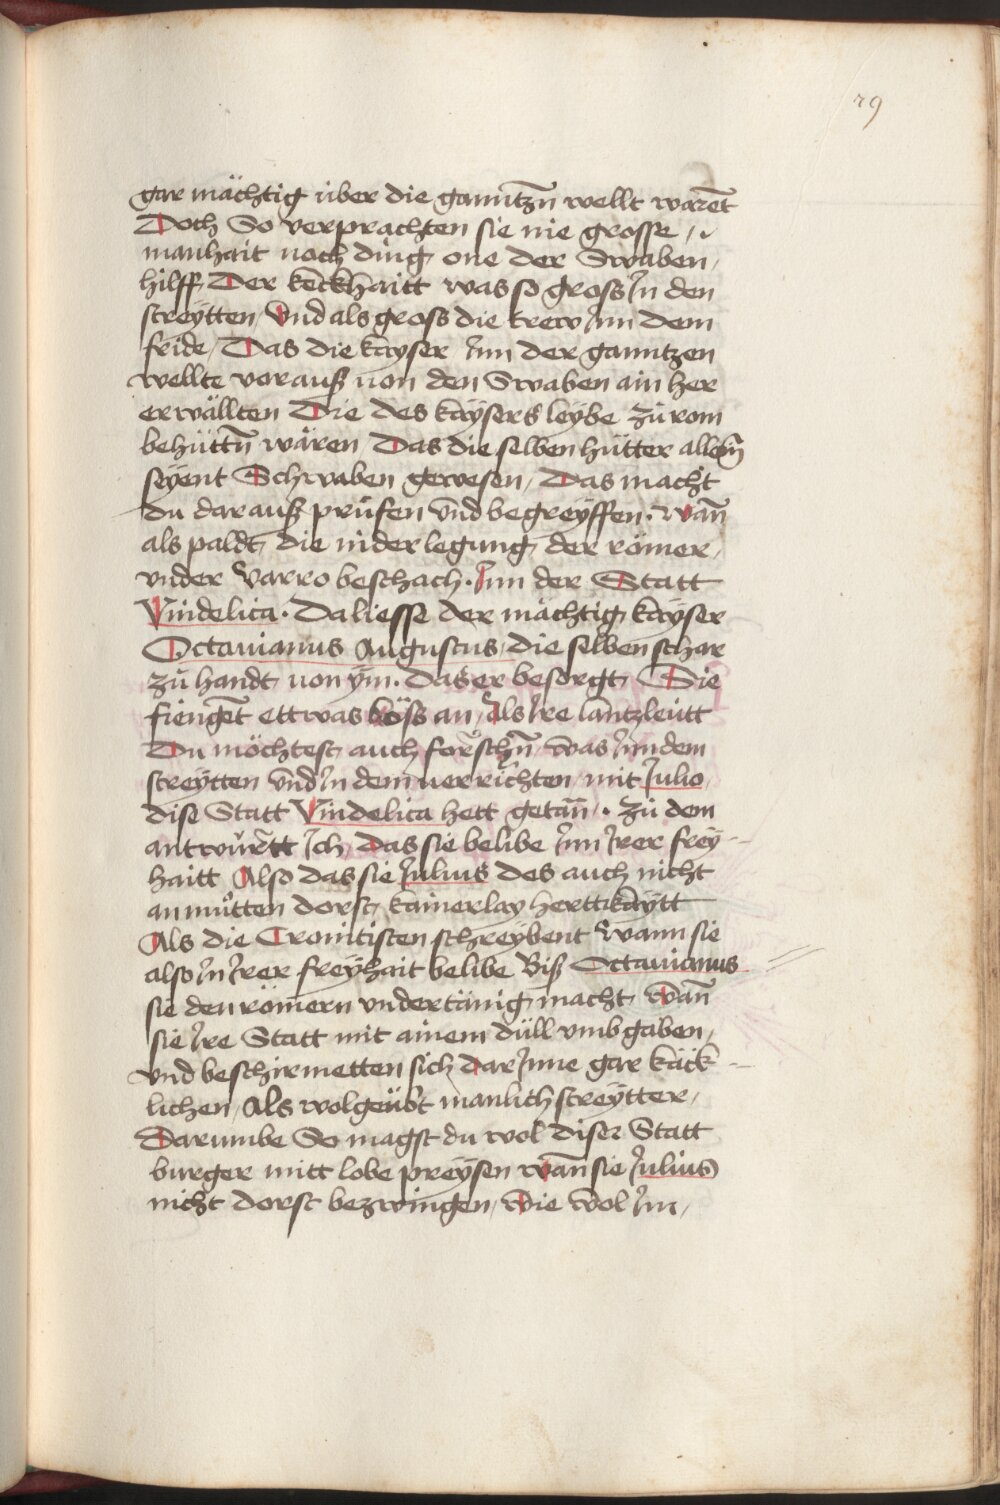 29
gar mächtig über die ganntzn̄ wellt warēt
Doch So verprachten sie nie grosse /.
manhait noch ding one der Swaben /
hilff Der keckhaitt was so gross Jn den
streÿtten / Vnd als gross die trew Jnn dem
fride / Das die kaÿser Jnn der ganntzen
wellte vorauß von den Swaben ain her
erwällten Die des kaÿsers leÿbe zů rom
behüttn̄ wären Das die selben hütter allein̄
seÿent Schwaben gewesen / Das macht
du darauß prüfen vnd begreÿffen · wan̄
als paldt die niderlegung der römer /
vnder Varro beschach · Jnn der Statt
Vindelica · Da liesse der mächtig kaÿser
Octauianus Augustus / die selben schar
zů handt von ÿm · das er besorgt Sie
fiengēt ettwas böss an / Als Jre lantzleutt
Du möchtest auch forschn̄ was Jnn dem
streÿtten vnd Jn dem verrichten / mit Julio
dise Statt Vindelica hett getan̄ · zů dem
antwurtt Jch / Das sie belibe Jnn Jrer freÿ-
haitt Also das sie Julius des auch nicht
anmůtten dorst / kainerlaÿ herttikaÿtt
Als die Cronitisten schreÿbent Wann sie
also Jn Jrer freÿhait belibe Biß Octauianus
sie den römern vndertänig macht wan̄
sie Jre Statt mit ainem düll vmbgaben /
vnd beschirmetten sich darJnne gar käck-
lichen / Als wolgeübt manlich streÿtter /
Darumbe So magst du wol diser Statt
burger mitt lobe preÿsen wan̄ sie Julius
nicht dorst bezwingen / wie wol Jm /